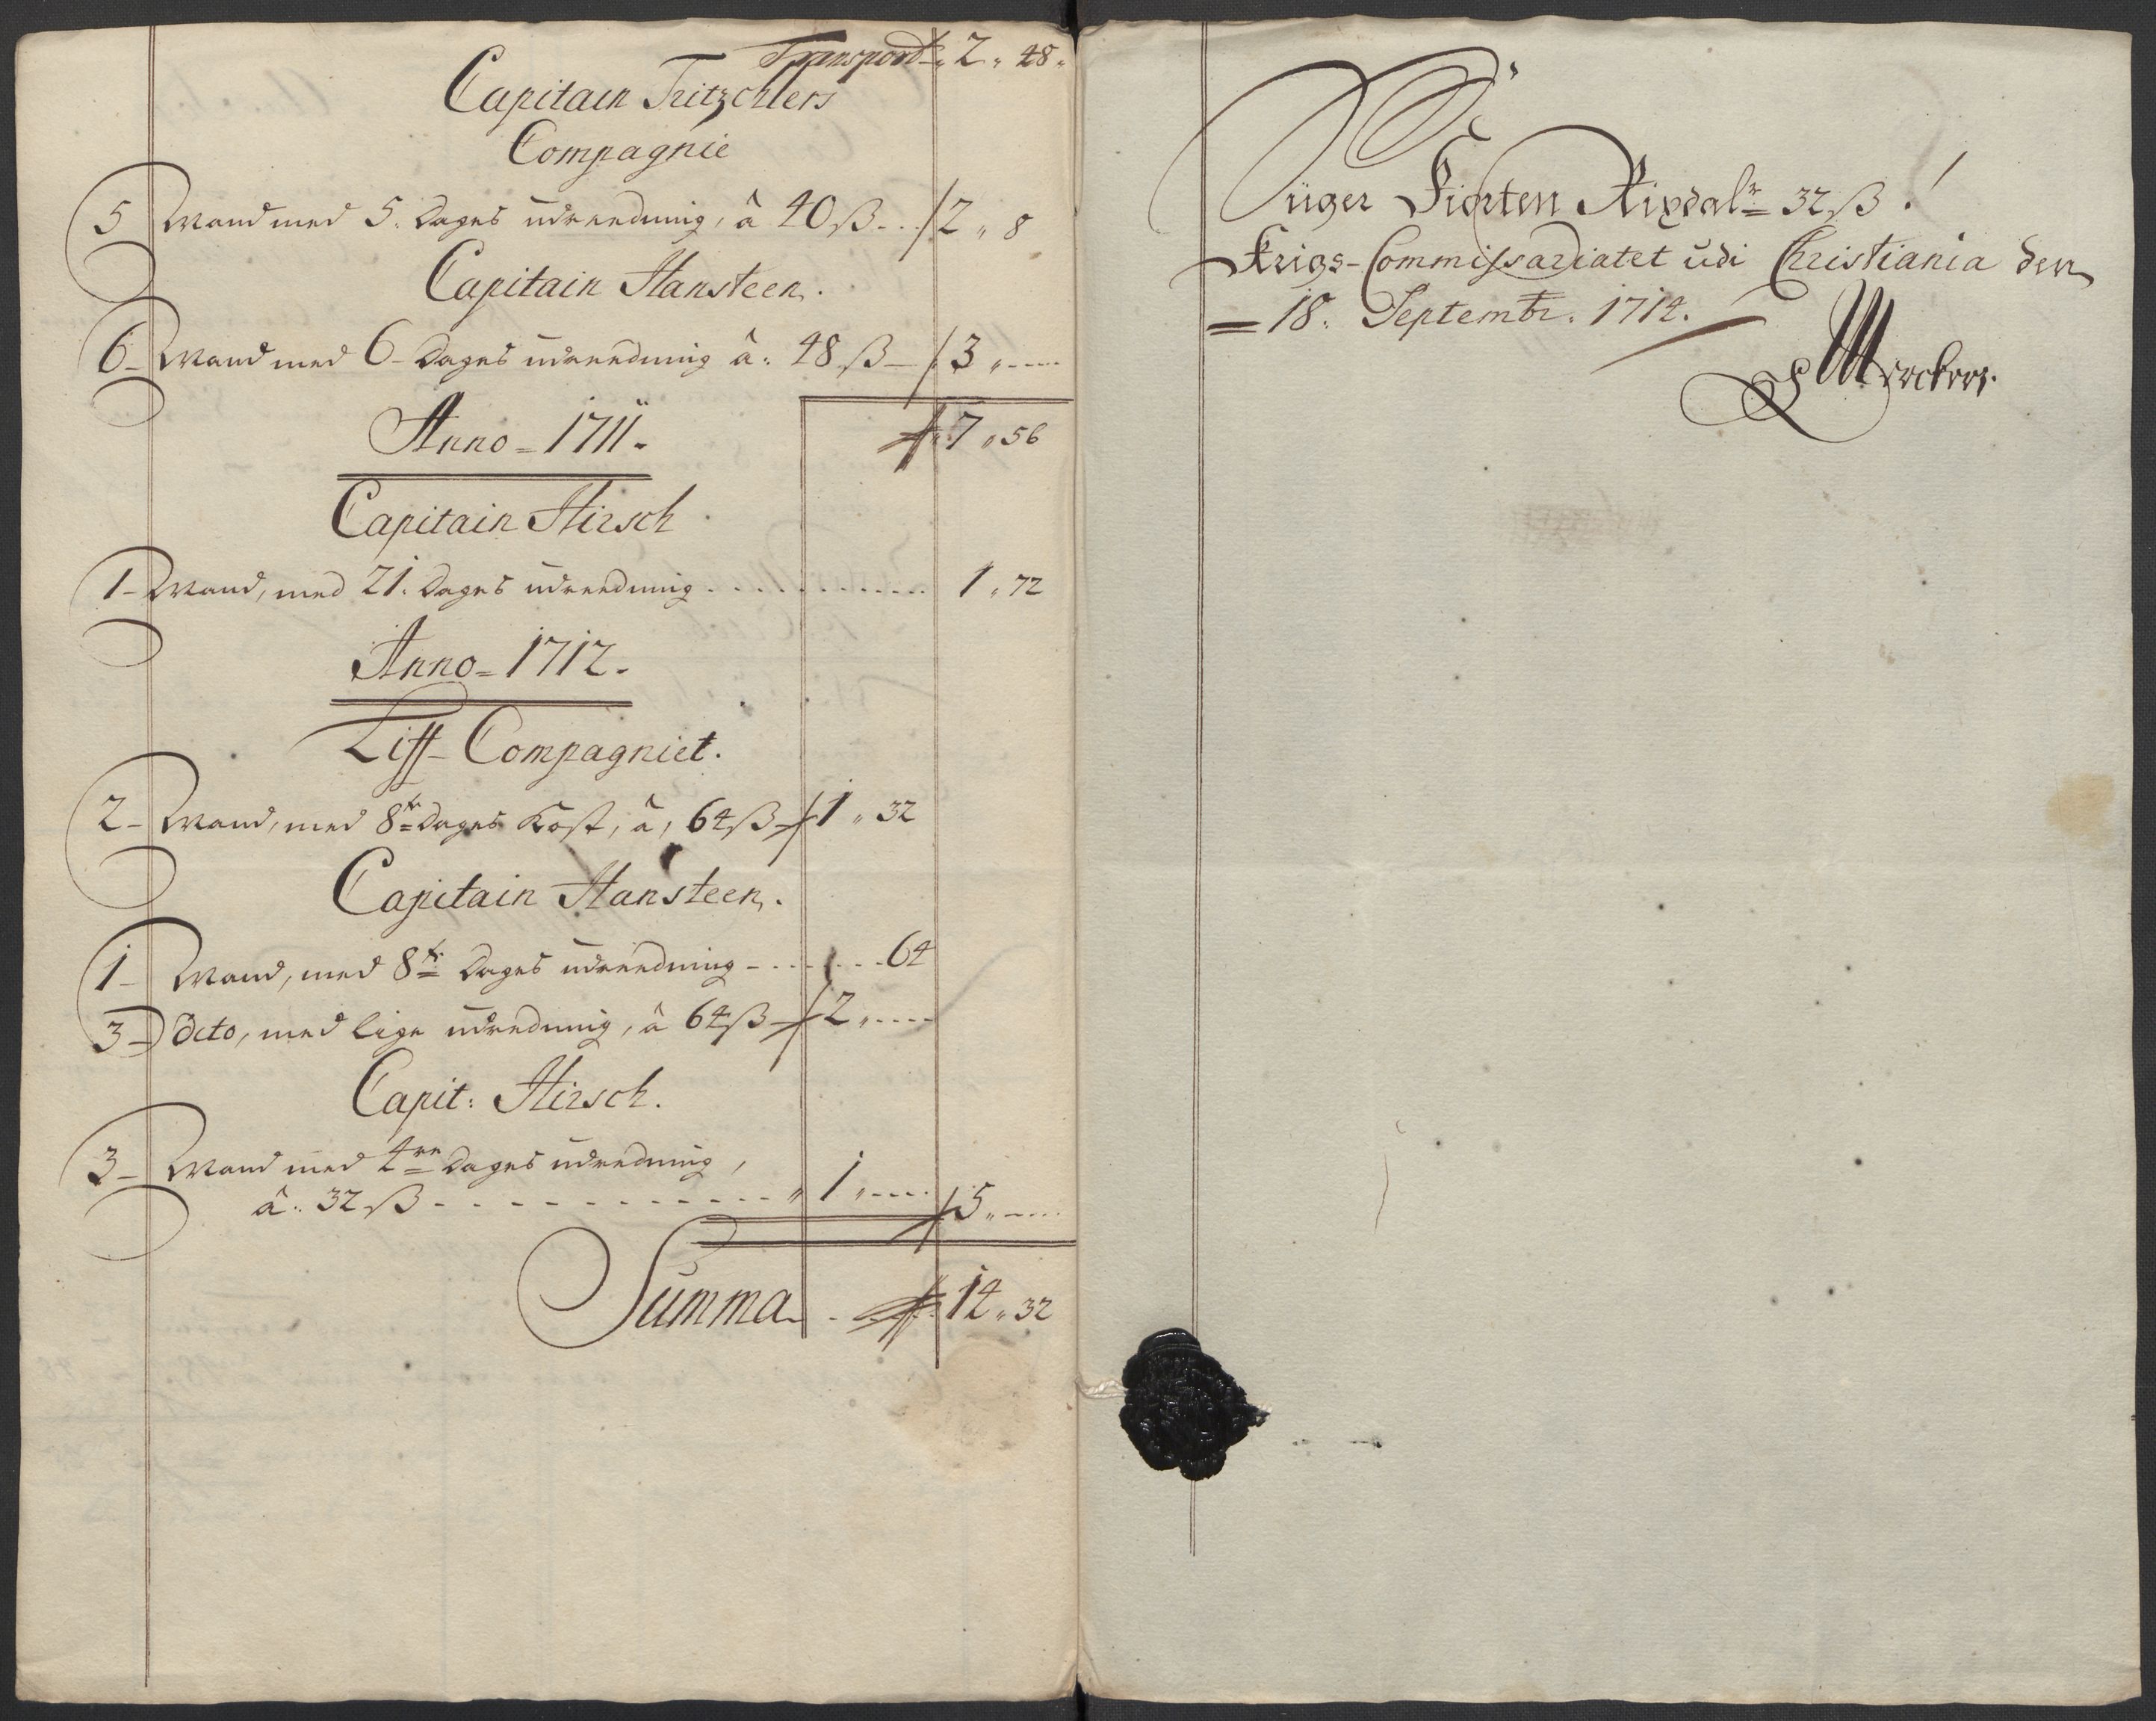 Transport 2 " 48 "
Capitain Fritzchlers
Compagnie
5 Mand med 5. Dages udreedning, â 40 ß. . . 2 " 8
Capitain Hansteen.
6 - Mand med 6 - Dages udreedning â: 48 ß - 3 " - - - -
Anno = 1711 -
7 " 56
Capitain Hirsch
1 - Mand, med 21. Dages udreedning . . . . . . . . 1 " 72
Anno = 1712 -
Liff - Compagniet.
2 - Mand, med 8te Dages Kost, â, 64 ß 1 " 32
Capitain Hansteen.
1 - Mand, med 8te Dages udreedning - . . . . . 64
3 - Dito, med lige udredning, â 64 ß 2 " - - - -
Capit: Hirsch.
3 - Mand med 4re Dages udredning,
â: 32 ß - - - - - - - - - - " 1 " - - - - 5 " - - - -
Summa - 14 " 32
Siger Fiorten Rixdalr 32 ß !
Krigs-Commissariatet udi Christiania den
= 18. Septembr. 1714.
Merckers.